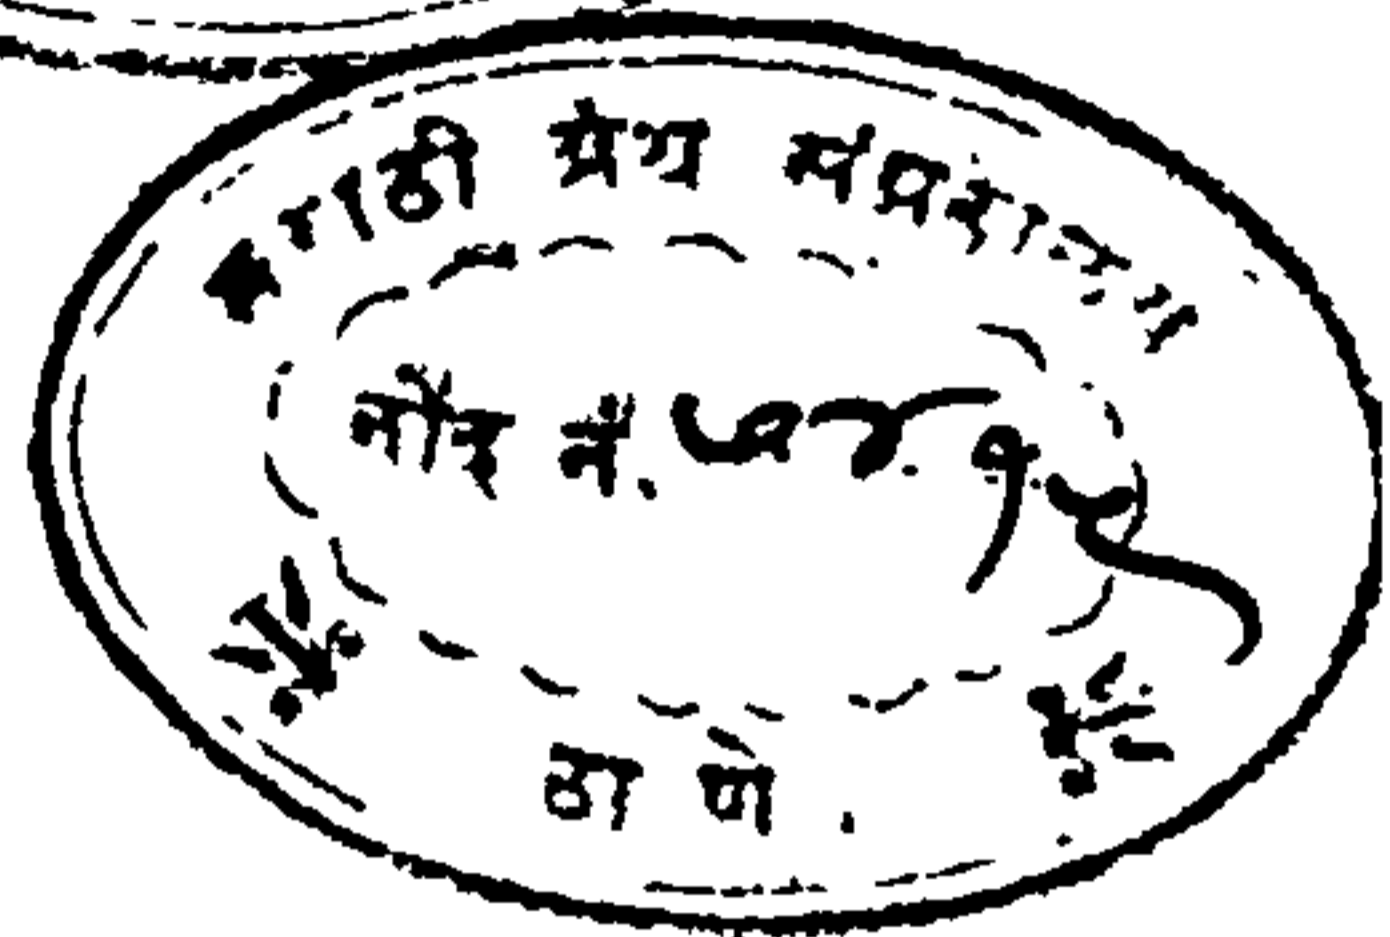 मराठी ग्रंथ संग्रहालय
नोंद नं.
ठाणे.